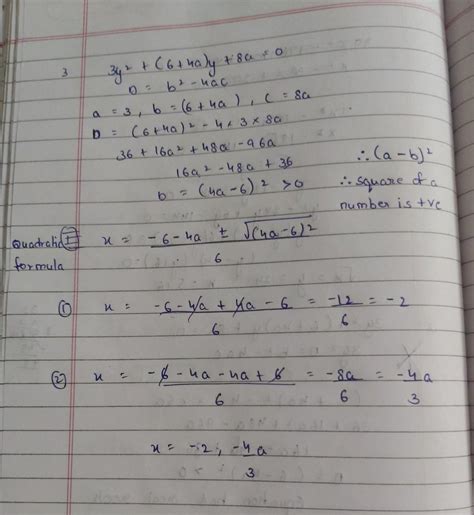 3 3y² + (6+4a)y + 8a = 0
D = b² - 4ac
a = 3, b = (6+4a), c = 8a
D = (6+4a)² - 4×3×8a
36 + 16a² + 48a - 96a
16a² - 48a + 36 ∴ (a-b)²
b = (4a-6)² >0 ∴ square of a
number is +ve
Quadratic formula x = -6-4a ± √(4a-6)² / 6
① x = -6-4a+4a-6 / 6 = -12 / 6 = -2
② x = -6-4a-4a+6 / 6 = -8a / 6 = -4a / 3
x = -2, -4a / 3